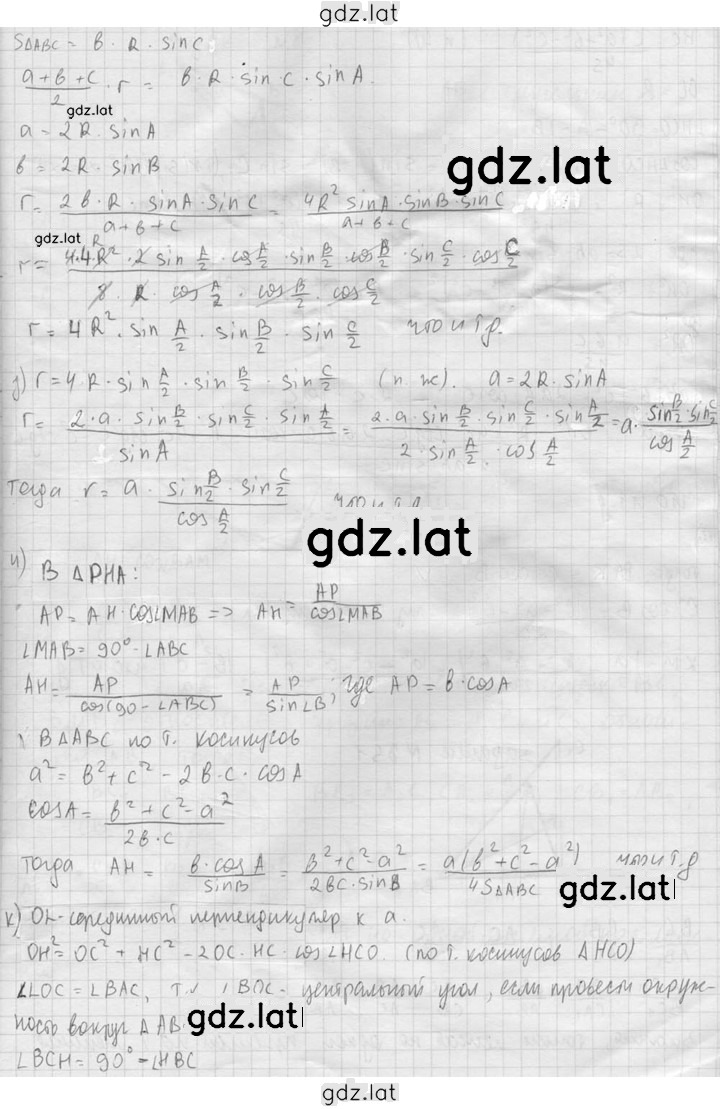 gdz.lat
S△ABC = в · R · sin C
(a+в+c)/2 · r = в · R · sin C · sin A.
gdz.lat
a = 2R · sin A
в = 2R · sin B
gdz.lat
r = (2в · R · sin A · sin C)/(a+в+c) = (4R² sin A · sin B · sin C)/(a+в+c)
gdz.lat
r = (4·4R² · 2 sin A/2 · cos A/2 · sin B/2 · cos B/2 · sin C/2 · cos C/2)/(8 · R · cos A/2 · cos B/2 · cos C/2)
r = 4R² · sin A/2 · sin B/2 · sin C/2 что и т.д.
з) r = 4·R · sin A/2 · sin B/2 · sin C/2 (п. ж). a = 2R · sin A
r = (2·a · sin B/2 · sin C/2 · sin A/2)/(sin A) = (2·a · sin B/2 · sin C/2 · sin A/2)/(2 · sin A/2 · cos A/2) = a · (sin B/2 · sin C/2)/(cos A/2)
Тогда r = a · (sin B/2 · sin C/2)/(cos A/2) что и т.д.
gdz.lat
и) В △PHA:
AP = AH · cos∠MAB => AH = AP/(cos∠MAB)
∠MAB = 90° - ∠ABC
AH = AP/(cos(90 - ∠ABC)) = AP/(sin∠B), где AP = в · cos A
В △ABC по т. косинусов
a² = в² + c² - 2в · c · cos A
cos A = (в² + c² - a²)/(2в · c)
Тогда AH = (в · cos A)/(sin B) = (в² + c² - a²)/(2вc · sin B) = (a(в² + c² - a²))/(4S△ABC) что и т.д
gdz.lat
к) OL - серединный перпендикуляр к a.
OH² = OC² + HC² - 2OC · HC · cos∠HCO. (по т. косинусов △HCO)
∠LOC = ∠BAC, т.к ∠BOC - центральный угол, если провести окруж-
ность вокруг △AB
gdz.lat
∠BCH = 90° - ∠HBC
gdz.lat